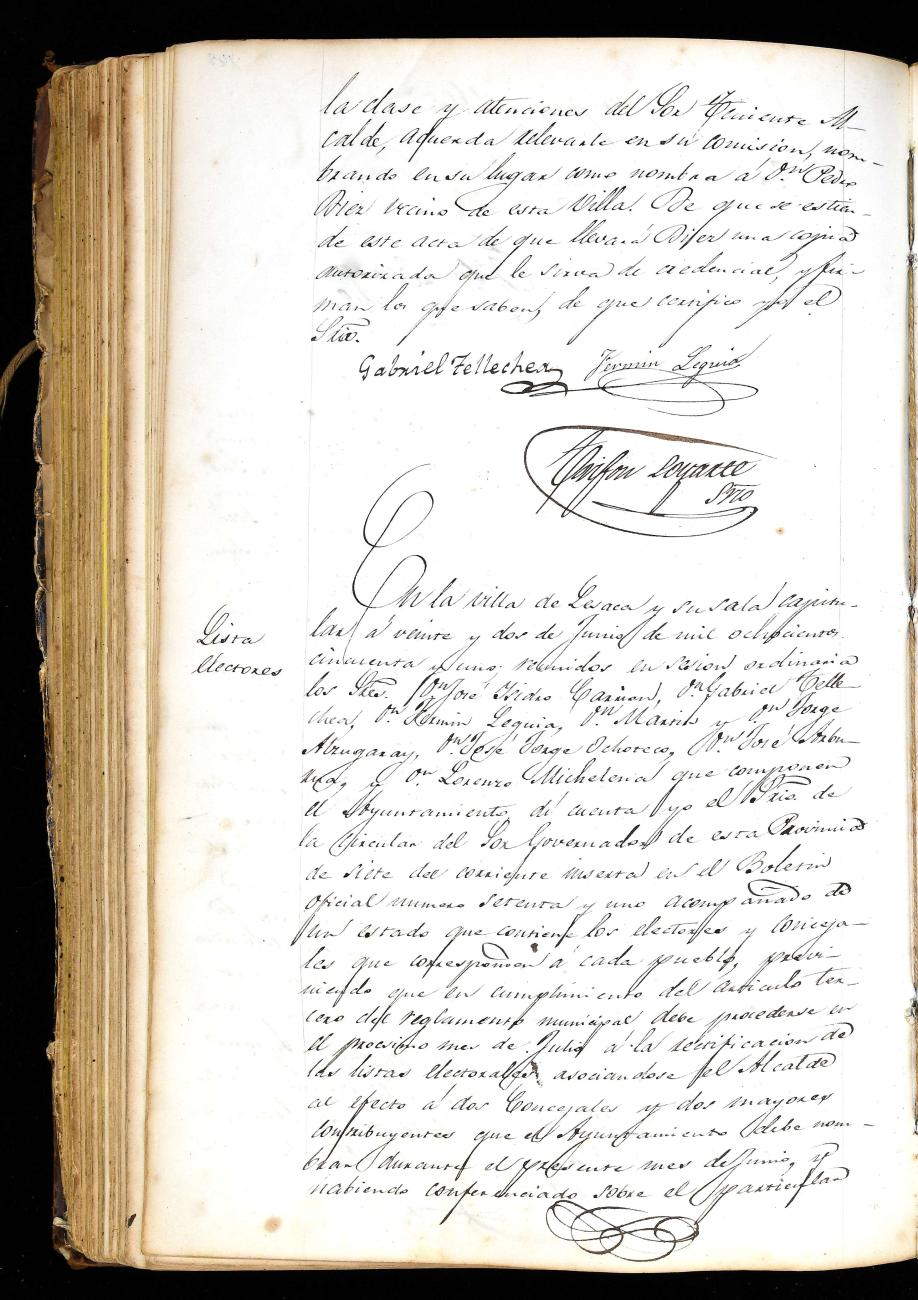 la clase y atenciones del Sor Teniente Al-
calde, acuerda relevarle en su comision, nom-
brando en su lugar como nombra á Dn. Pedro
Bier vecino de esta Villa. De que se estien-
de este acta de que llevará Bier una copia
autorizada que le sirva de credencial, y fir-
man los que saben, de que certifico yo el
Srio.
Gabriel Tellechea Fermin Leguia
Srio
En la villa de Lesaca y su sala capitu-
lar á veinte y dos de Junio de mil ochocientos
Lista
electores
cincuenta y uno: reunidos en sesion ordinaria
los Sres. Dn José Isidro Carrion, Dn Gabriel Telle-
chea, Dn Fermin Leguia, Dn Martin y Dn Jorge
Alzugaray, Dn José Jorge Ochoteco, Dn José
y Dn Lorenzo Michelena que componen
el Ayuntamiento, dí cuenta yo el Srio. de
la circular del Sor Governador de esta Provincia
de siete del corriente inserta en el Boletin
oficial numero setenta y uno acompañado de
un estado que contiene los electores y conceja-
les que corresponden á cada pueblo, previ-
niendo que en cumplimiento del articulo ter-
cero del reglamento municipal debe procederse en
el procsimo mes de Julio á la rectificacion de
las listas electorales asociandose el Alcalde
al efecto á dos Concejales y dos mayores
contribuyentes que el Ayuntamiento debe nom-
brar durante el presente mes de Junio, y
habiendo conferenciado sobre el particular